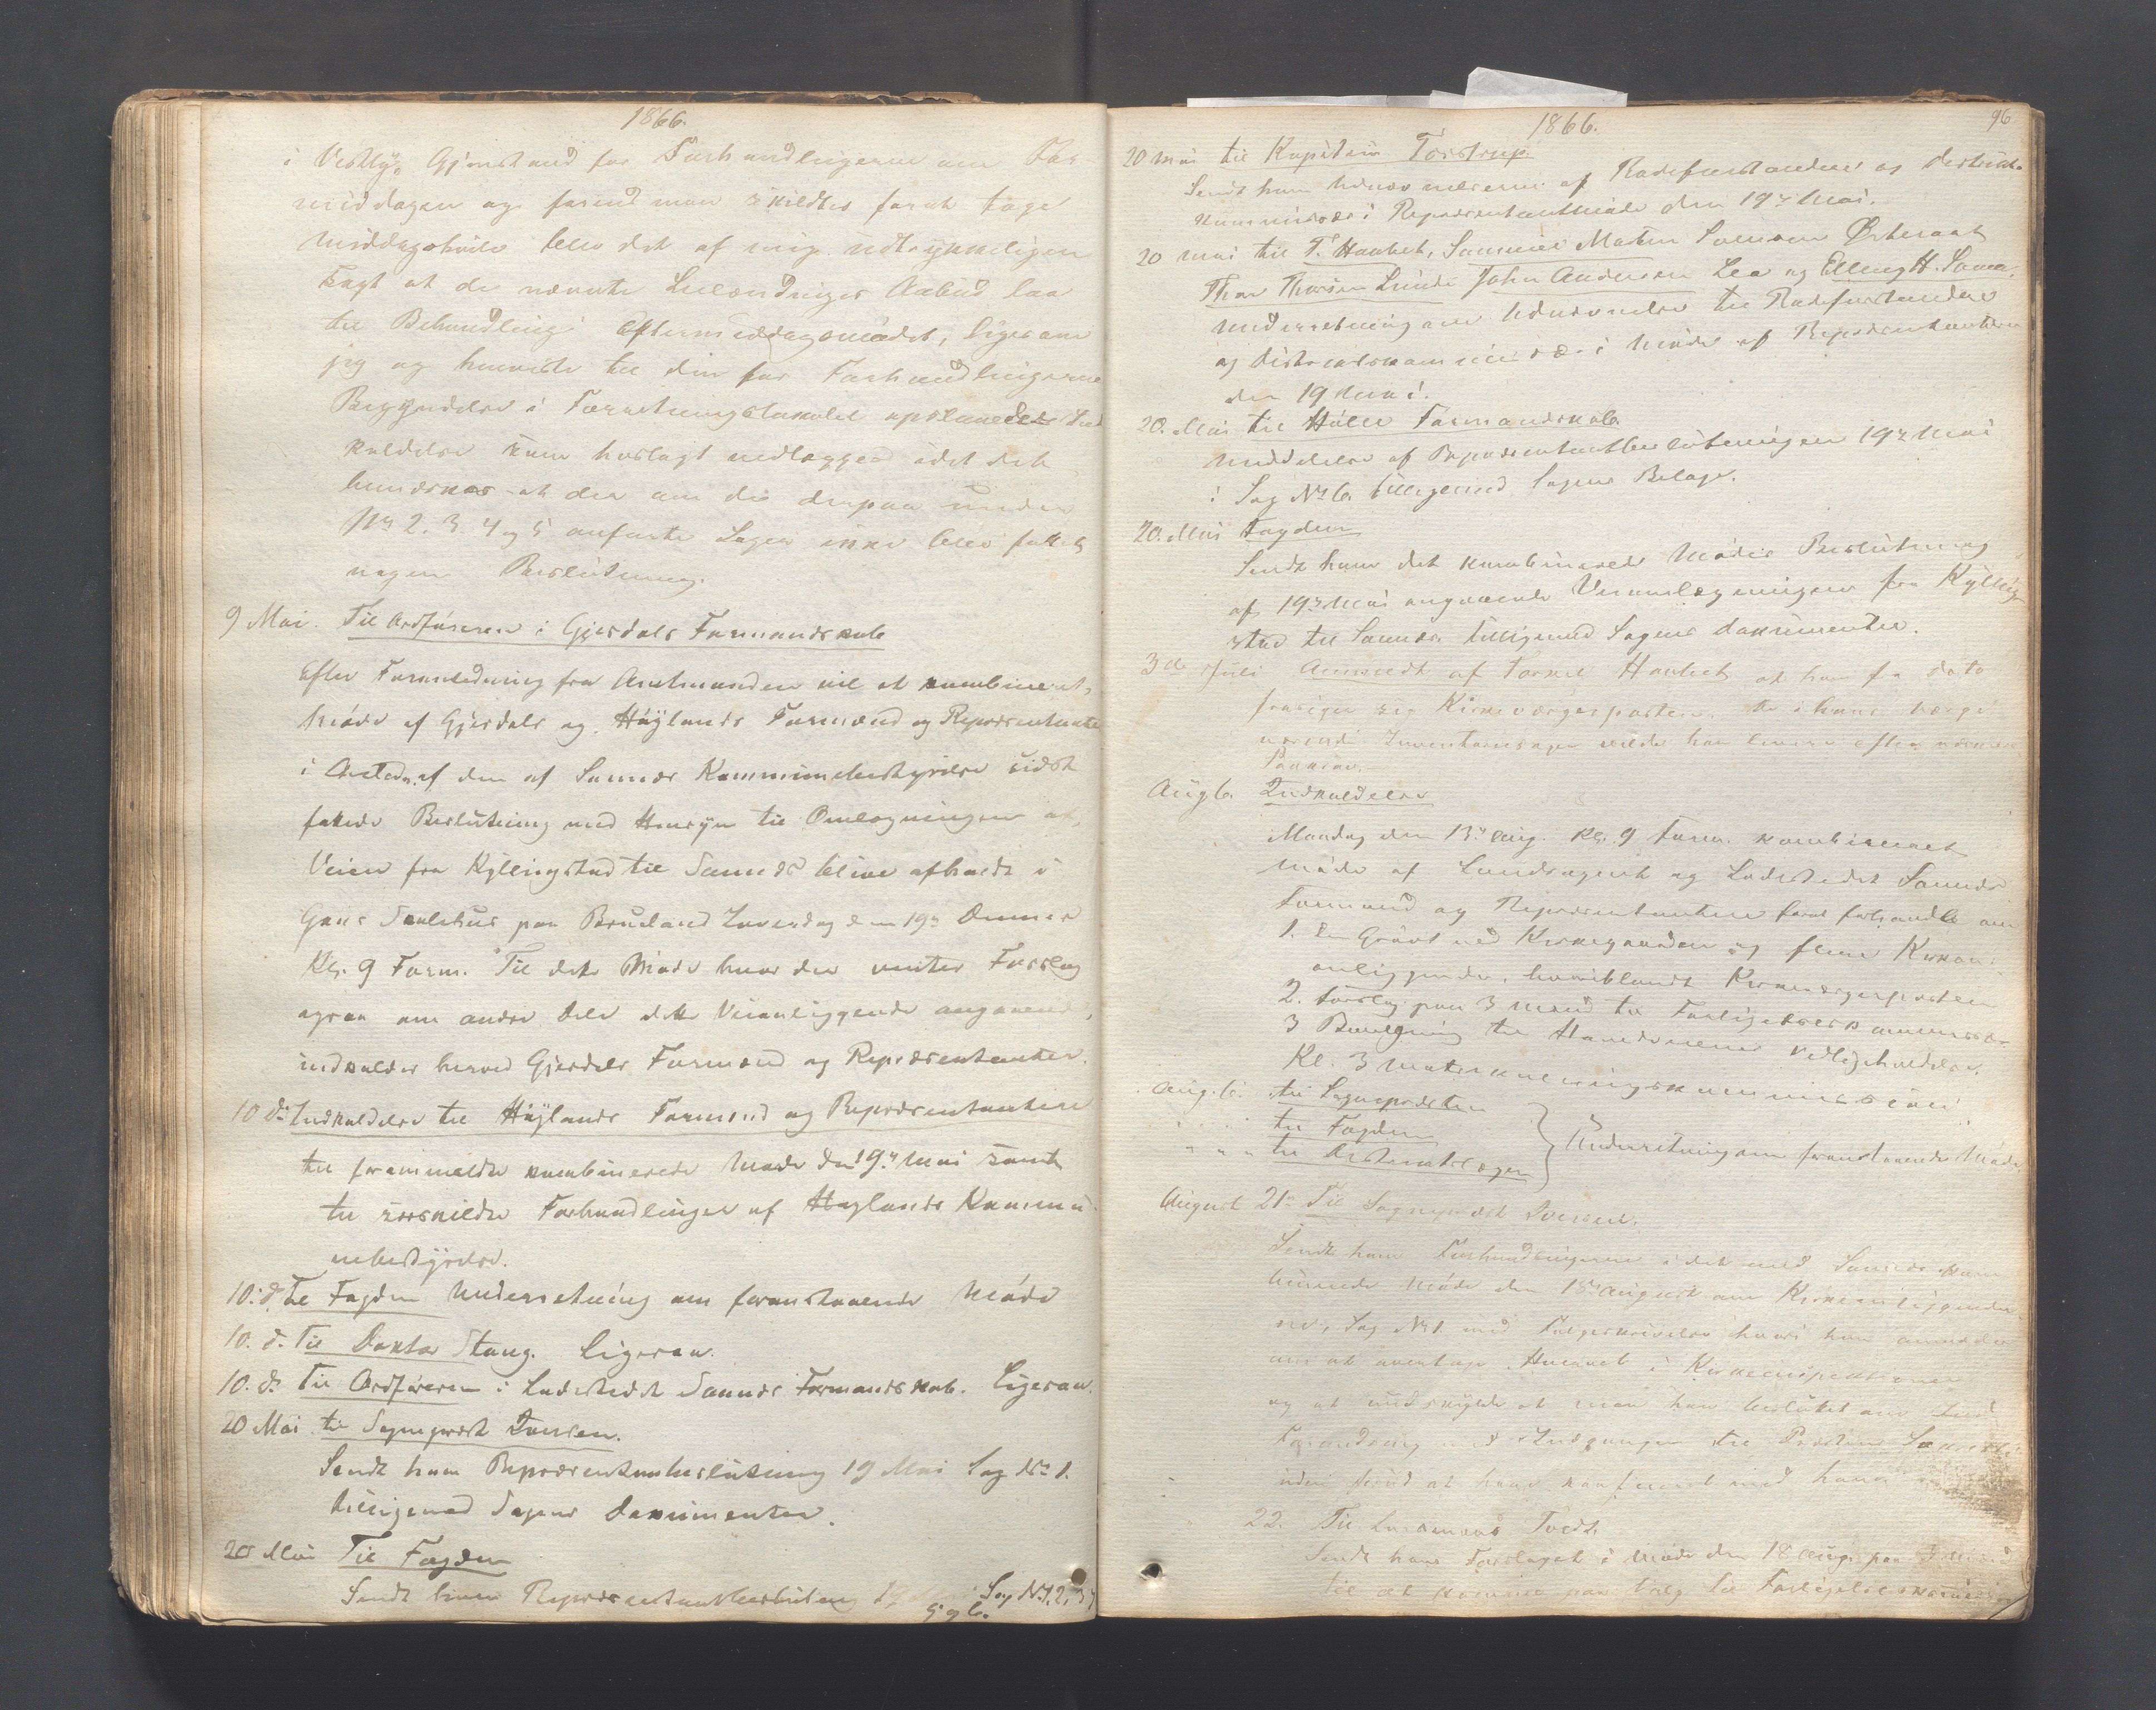 1866.
i Gjenstand for Forhandlingerne om For-
middagen og forend man skildtes forat tage
Middagshvile blev det af mig udtrykkeligen
sagt at de nævnte Aabud laa
til Behandling i Eftermiddagsmødet, ligesom
jeg og henviste til den for Forhandlingernes
Begyndelse i Forretningslokalet opslaaede Ind
kaldelse som hoslagt vedlægges idet det
bemærkes at der om de derpaa under
No 2. 3. 4 og 5 anførte Sager ikke blev fattet
nogen Beslutning.
9 Mai. Til Ordføreren i Gjesdals Formandskab
Efter Foranledning fra Amtmanden vil et kombineret
Møde af Gjesdals og Høylands Formænd og Repræsentanter
i Anledn. af den af Sannæs Kommunebestyrelse sidst
fattede Beslutning med Hensyn til Omlægningen af
Veien fra Kyllingstad til Sannæs blive afholdt i
Gans Skolehus paa Brueland Løverdag den 19de Dennes
Kl. 9 Form. Til dette Møde hvor der ventes Forslag
ogsaa om andre dele dette Veianliggende angaaende,
indkaldes herved Gjesdals Formænd og Repræsentanter.
10 ds Indkaldelse til Høylands Formænd og Repræsentantere
til foranmeldte kombinerede Møde den 19de Mai samt
til særskildte Forhandlinger af Høylands Kommu-
nebestyrelse.
10. d. Til Fogden Underretning om foranstaaende Møde
10. d. Til Doktor Stang. Ligesaa.
10. d. Til Ordføreren i Ladestedet Sannæs Formandskab. Ligesaa.
20 Mai til Sognepræst Iversen.
Sendt ham Repræsentantbeslutning 19 Mai Sag No 1.
tilligemed Sagens Dokumenter.
20 Mai Til Fogden
Sendt ham Repræsentantbeslutning 19 Sag No 1, 2, 3, 4
5 og 6.
1866.
96
20 Mai til Kaptein Torstrup
Sendt ham Udnævnelserne af Rodeforstandere og Distrikts-
kommissær i Repræsentantmøde den 19de Mai.
20 Mai til T. Hanbet, Sammel Maten Svensen Østeraat
Thor Thorsen Lunde John Andersen Lea og Elling H. Soma.
Underretning om Udnævnelse til Rodeforstandere
og Distriktskommissær i Møde af Repræsentanterne
den 19 Mai.
20. Mai til Høle Formandskab
Meddelelse af Repræsentantbeslutningen 19de Mai
i Sag No 6. tilligemed Sagens Bilage.
20. Mai Fogden
Sendt ham det kombinerede Mødes Beslutning
af 19de Mai angaaende Veiomlægningen fra Kylling-
stad til Sannæs tilligemed Sagens Dokumenter.
3de Juli Anmeldt af Torkel Hanbet at han fra dato
frasiger sig Kirkeværgeposten. De i hans Værge
værende Inventariesager vilde han levere efter nærmere
Paakrav.
Aug 6. Indkaldelse
Mandag den 13de Aug. Kl. 9 Form. kombineret
Møde af Landsognet og Ladestedet Sannæs
Formænd og Repræsentantere forat forhandle om
1. En Grøvt ved Kirkegaarden og flere Kirkean-
anliggender, hvoriblandt Kirkeværgeposten
2. Forslag paa 3 Mænd til Forligelseskommissær
3 Bevilgning til Havnevæsenets Vedligeholdelse.
Kl. 3 Matrikuleringskommission
Aug. 6. til Sognepræsten
til Fogden
til Distriktslægen
Underretning om foranstaaende Møde
August 21de Til Sognepræst Iversen.
Sendt ham Forhandlingerne i det med Sannæs kom-
binerede Møde den 13de August om Kirkeanliggender
ne, Sag No 1 med Følgeskrivelse hvori han anmodes
om at Hvervet i Kirkeinspektionen
og at undskylde at man har besluttet om
Forandring ved Indgangen til Præstens
uden forud at have konfereret med ham
22. Til Lensmand Tvedt.
Sendt ham Forslaget i Møde den 18 Aug. paa 3 Mænd
til at komme paa Valg til Forligelseskommissær